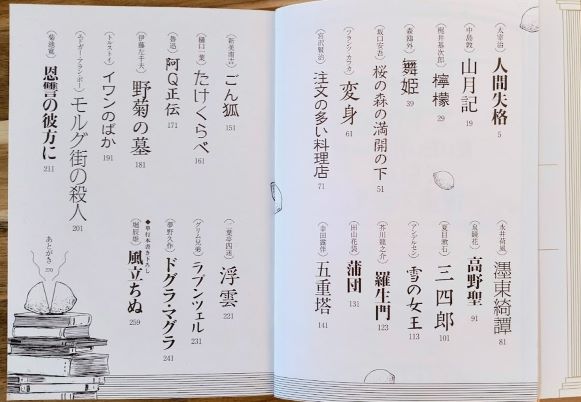 (太宰治) 人間失格 5
(中島敦) 山月記 19
(梶井基次郎) 檸檬 29
(森鷗外) 舞姫 39
(坂口安吾) 桜の森の満開の下 51
(フランツ・カフカ) 変身 61
(宮沢賢治) 注文の多い料理店 71
(永井荷風) 濹東綺譚 81
(泉鏡花) 高野聖 91
(夏目漱石) 三四郎 101
(アンデルセン) 雪の女王 113
(芥川龍之介) 羅生門 123
(田山花袋) 蒲団 131
(幸田露伴) 五重塔 141
(新美南吉) ごん狐 151
(樋口一葉) たけくらべ 161
(魯迅) 阿Q正伝 171
(伊藤左千夫) 野菊の墓 181
(トルストイ) イワンのばか 191
(エドガー・アラン・ポー) モルグ街の殺人 201
(菊池寛) 恩讐の彼方に 211
(二葉亭四迷) 浮雲 221
(グリム兄弟) ラプンツェル 231
(夢野久作) ドグラ・マグラ 241
◆単行本書き下ろし
(堀辰雄) 風立ちぬ 259
あとがき 270